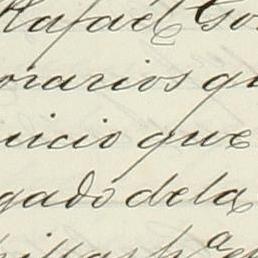 Rafael Go
orarios qu
uicio que
gado de la